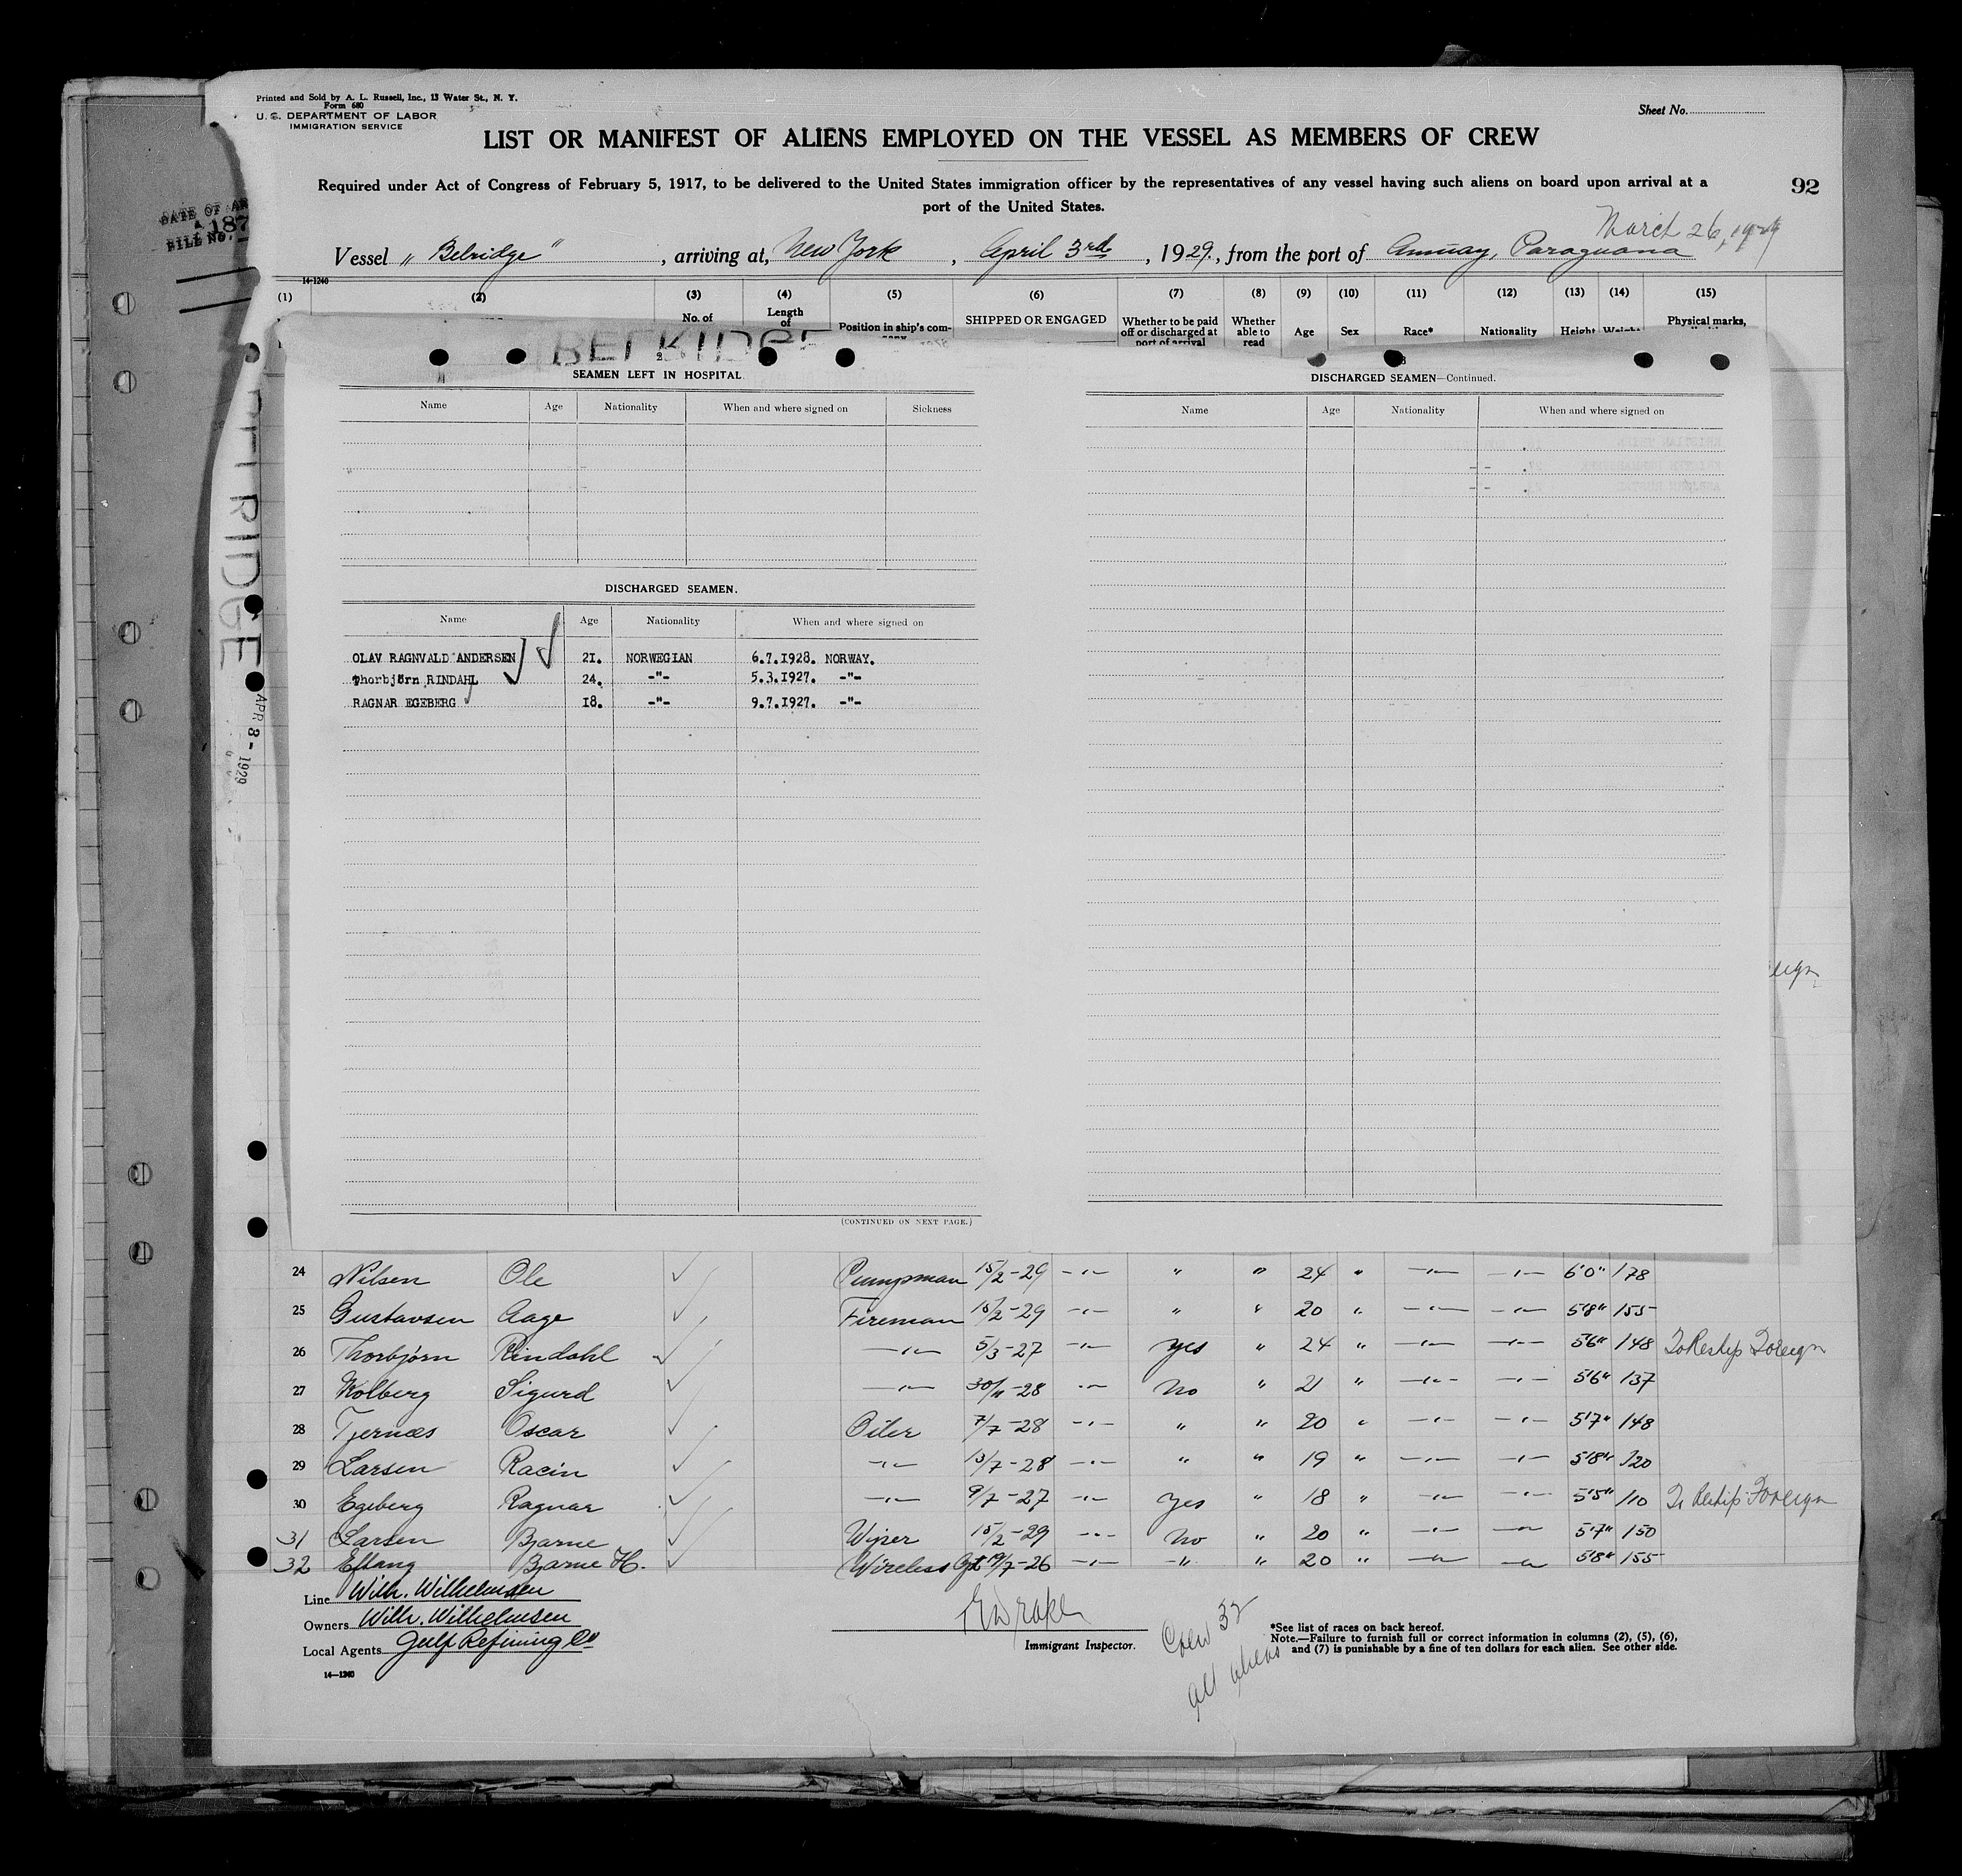 Printed and Sold by A. L. Russell, Inc., 13 Water St., N. Y.
Form 680
U. S. DEPARTMENT OF LABOR
IMMIGRATION SERVICE
Sheet No.
LIST OR MANIFEST OF ALIENS EMPLOYED ON THE VESSEL AS MEMBERS OF CREW
Required under Act of Congress of February 5, 1917, to be delivered to the United States immigration officer by the representatives of any vessel having such aliens on board upon arrival at a
port of the United States.
92
March 26, 1929
Vessel „ Belridge “, arriving at, New York, April 3rd, 1929., from the port of Amuay, Paraguana
14-1240
(1) (2) (3) (4) (5) (6) (7) (8) (9) (10) (11) (12) (13) (14) (15)
No. of
Length of
Position in ship's com-
SHIPPED OR ENGAGED
Whether to be paid off or discharged at port of arrival
Whether able to read
Age Sex Race* Nationality Height Weight
Physical marks,
DATE OF AR
187
BILL NO.
BELRIDGE
2
SEAMEN LEFT IN HOSPITAL
Name Age Nationality When and where signed on Sickness
DISCHARGED SEAMEN.
Name Age Nationality When and where signed on
OLAV RAGNVALD ANDERSEN 21. NORWEGIAN 6.7.1928. NORWAY.
Thorbjörn RINDAHL 24. -"- 5.3.1927. -"-
RAGNAR EGEBERG 18. -"- 9.7.1927. -"-
(CONTINUED ON NEXT PAGE.)
3
DISCHARGED SEAMEN—Continued.
Name Age Nationality When and where signed on
ELRIDGE
APR 8 - 1929
eign
24 Nilsen Ole Pumpman 15/2-29 -"- " " 24 " -"- -"- 6'0" 178
25 Gustavsen Aage Fireman 15/2-29 -"- " " 20 " -"- -"- 5'8" 155
26 Thorbjørn Rindahl -"- 5/3-27 -"- yes " 24 " -"- -"- 5'6" 148 To Reship Foreign
27 Kolberg Sigurd -"- 30/11-28 -"- No " 21 " -"- -"- 5'6" 137
28 Tjernæs Oscar Oiler 7/7-28 -"- " " 20 " -"- -"- 5'7" 148
29 Larsen Racin -"- 15/7-28 -"- " " 19 " -"- -"- 5'8" 120
30 Egeberg Ragnar -"- 9/7-27 -"- Yes " 18 " -"- -"- 5'5" 110 To Reship Foreign
31 Larsen Bjarne Wiper 15/2-29 -"- No " 20 " -"- -"- 5'7" 150
32 Eftang Bjarne H. Wireless Opt 19/7-26 -"- -"- " 20 " -"- -"- 5'8" 155
Line Wilh. Wilhelmsen
Owners Wilh. Wilhelmsen
Local Agents Gulf Refining Co
14—1240
Immigrant Inspector.
Crew 32
all aliens
*See list of races on back hereof.
Note.—Failure to furnish full or correct information in columns (2), (5), (6),
and (7) is punishable by a fine of ten dollars for each alien. See other side.